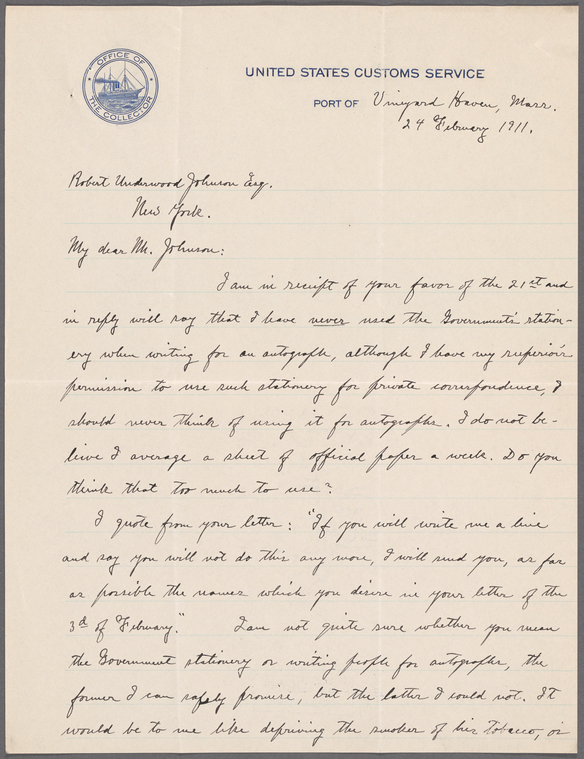 OFFICE OF
THE COLLECTOR
UNITED STATES CUSTOMS SERVICE
PORT OF Vineyard Haven, Mass.
24 February 1911.
Robert Underwood Johnson Esq.
New York.
My dear Mr. Johnson:
I am in receipt of your favor of the 21st and
in reply will say that I have never used the Government's station-
ery when writing for an autograph, although I have my superior's
permission to use such stationery for private correspondence, I
should never think of using it for autographs. I do not be-
lieve I average a sheet of official paper a week. Do you
think that too much to use?
I quote from your letter: "If you will write me a line
and say you will not do this any more, I will send you, as far
as possible the names which you desire in your letter of the
3d of February." I am not quite sure whether you mean
the Government stationery or writing people for autographs, the
former I can safely promise, but the latter I could not. It
would be to me like depriving the smoker of his tobacco, or